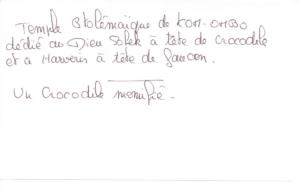 Temple Ptolémaïque de KOM-OMBO
dédié au Dieu Sobek à tête de Crocodile
et a Haroeris à tête de faucon.
Un Crocodile momifié.